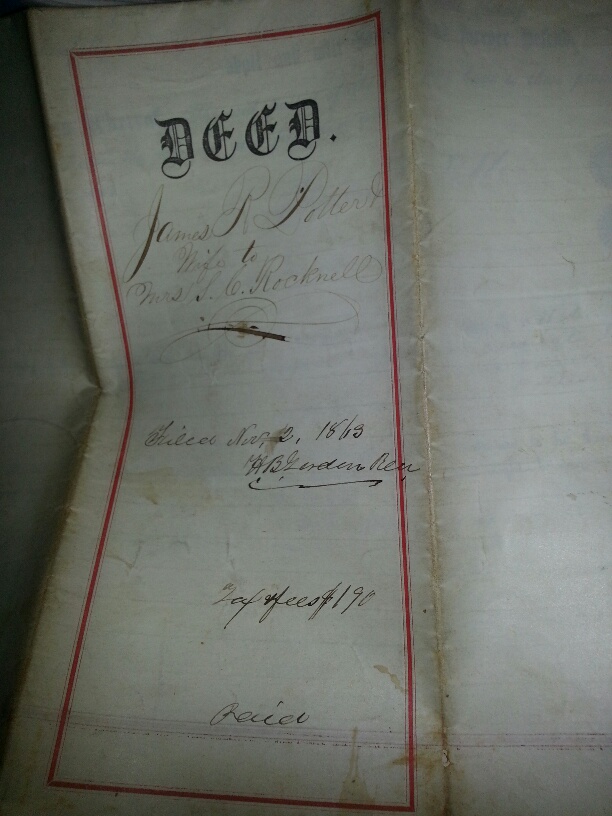 DEED.
James R Potter &
Wife to
Mrs S. C. Rocknell
Filed Nov 2, 1863
H B Gordon
Tax & fees $1 90
Paid